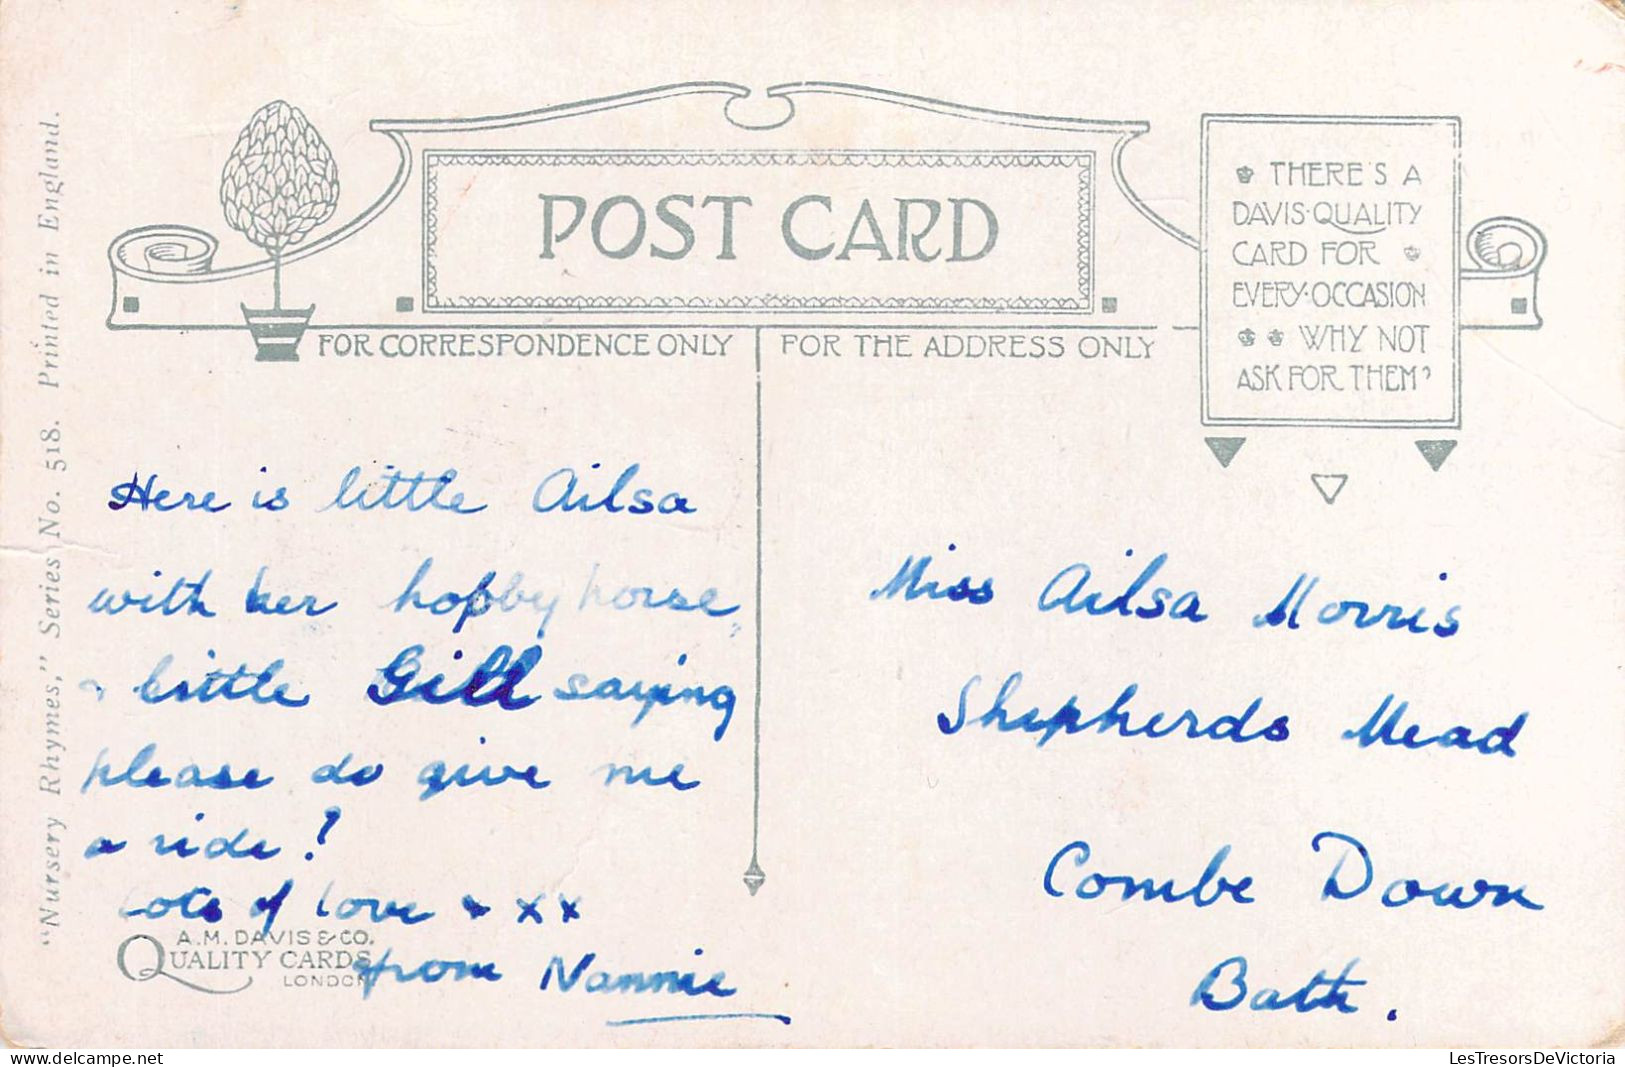 POST CARD
THERE'S A
DAVIS·QUALITY
CARD FOR
EVERY·OCCASION
WHY NOT
ASK FOR THEM?
FOR CORRESPONDENCE ONLY
FOR THE ADDRESS ONLY
"Nursery Rhymes," Series No. 518. Printed in England.
Here is little Ailsa
with her hobby horse,
& little Gill saying
please do give me
a ride!
Lots of love x x x
from Nannie
A.M. DAVIS & CO.
QUALITY CARDS
LONDON
Miss Ailsa Morris
Shepherds Mead
Combe Down
Bath.
LesTresorsDeVictoria